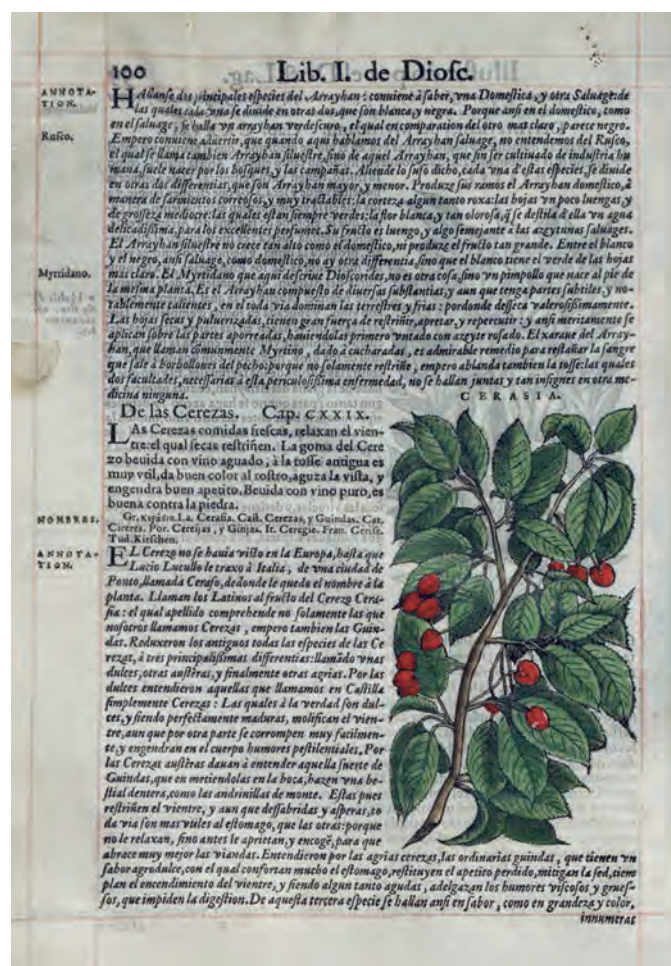 100
Lib. I. de Dioſc.
ANNOTA-
TION.
HAllanſe dos principales eſpecies del Arrayhan: conuiene à ſaber, vna Domeſtica, y otra Saluage: de
las quales cada vna ſe diuide en otras dos, que ſon blanca, y negra. Porque anſi en el domeſtico, como
en el ſaluage, ſe halla vn arrayhan verdeſcuro, el qual en comparation del otro mas claro, parece negro.
Ruſco.
Empero conuiene aduertir, que quando aqui hablamos del Arrayhan ſaluage, no entendemos del Ruſco,
el qual ſe llama tambien Arrayhan ſilueſtre, ſino de aquel Arrayhan, que ſin ſer cultiuado de induſtria hu
mana, ſuele nacer por los boſques, y las campañas. Aliende lo ſuſo dicho, cada vna d'eſtas eſpecies, ſe diuide
en otras dos differentias, que ſon Arrayhan mayor, y menor. Produze ſus ramos el Arrayhan domeſtico, à
manera de ſarmientos correoſos, y muy tractables: la corteza algun tanto roxa: las hojas vn poco luengas, y
de groſſeza mediocre: las quales eſtan ſiempre verdes: la flor blanca, y tan oloroſa, q̃ ſe deſtila d'ella vn agua
delicadiſsima, para los excellentes perfumes. Su fructo es luengo, y algo ſemejante a las azeytunas ſaluages.
El Arrayhan ſilueſtre no crece tan alto como el domeſtico, ni produze el fructo tan grande. Entre el blanco
y el negro, anſi ſaluage, como domeſtico, no ay otra differentia, ſino que el blanco tiene el verde de las hojas
Myrtidano.
mas claro. El Myrtidano que aqui deſcriue Dioſcorides, no es otra coſa, ſino vn pimpollo que nace al pie de
la meſma planta. Es el Arrayhan compueſto de diuerſas ſubſtantias, y aun que tenga partes ſubtiles, y no-
tablemente calientes, en el toda via dominan las terreſtres y frias: por donde deſſeca valeroſiſsimamente.
Las hojas ſecas y puluerizadas, tienen gran fuerça de reſtriñir, apretar, y repercutir: y anſi meritamente ſe
aplican ſobre las partes aporreadas, hauiendolas primero vntado con azeyte roſado. El xaraue del Array-
han, que llaman comunmente Myrtino, dado à cucharadas, es admirable remedio para reſtañar la ſangre
que ſale à borbollones del pecho: porque no ſolamente reſtriñe, empero ablanda tambien la toſſe: las quales
dos facultades, neceſſarias à eſta periculoſiſsima enfermedad, no ſe hallan juntas y tan inſignes en otra me-
dicina ninguna.
CERASIA.
De las Cerezas. Cap. CXXIX.
LAs Cerezas comidas freſcas, relaxan el vien-
tre: el qual ſecas reſtriñen. La goma del Cere
zo beuida con vino aguado, à la toſſe antigua es
muy vtil, da buen color al roſtro, aguza la viſta, y
engendra buen apetito. Beuida con vino puro, es
buena contra la piedra.
NOMBRES.
Gr. κεράσια. La. Ceraſia. Caſt. Cerezas, y Guindas. Cat.
Cireres. Por. Cereijas, y Ginjas. It. Ceregie. Fran. Ceriſe.
Tud. Kirſchen.
ANNOTA-
TION.
EL Cerezo no ſe hauia viſto en la Europa, haſta que
Lucio Lucullo le traxo à Italia, de vna ciudad de
Ponto, llamada Ceraſo, de donde le quedo el nombre à la
planta. Llaman los Latinos al fructo del Cerezo Cera-
ſia: el qual apellido comprehende no ſolamente las que
noſotros llamamos Cerezas, empero tambien las Guin-
das. Reduxeron los antiguos todas las eſpecies de las Ce
rezas, à tres principaliſsimas differentias: llamãdo vnas
dulces, otras auſtèras, y finalmente otras agrias. Por las
dulces entendieron aquellas que llamamos en Caſtilla
ſimplemente Cerezas: Las quales à la verdad ſon dul-
ces, y ſiendo perfectamente maduras, molifican el vien-
tre, aun que por otra parte ſe corrompen muy facilmen-
te, y engendran en el cuerpo humores peſtilentiales. Por
las Cerezas auſtèras dauan à entender aquella ſuerte de
Guindas, que en metiendolas en la boca, hazen vna be-
ſtial dentera, como las andrinillas de monte. Eſtas pues
reſtriñen el vientre, y aun que deſſabridas y aſperas, to
da via ſon mas vtiles al eſtomago, que las otras: porque
no le relaxan, ſino antes le aprietan, y encogẽ, para que
abrace muy mejor las viandas. Entendieron por las agrias cerezas, las ordinarias guindas, que tienen vn
ſabor agrodulce, con el qual confortan mucho el eſtomago, reſtituyen el apetito perdido, mitigan la ſed, tiem
plan el encendimiento del vientre, y ſiendo algun tanto agudas, adelgazan los humores viſcoſos y grueſ-
ſos, que impiden la digeſtion. De aqueſta tercera eſpecie ſe hallan anſi en ſabor, como en grandeza y color,
innumeras